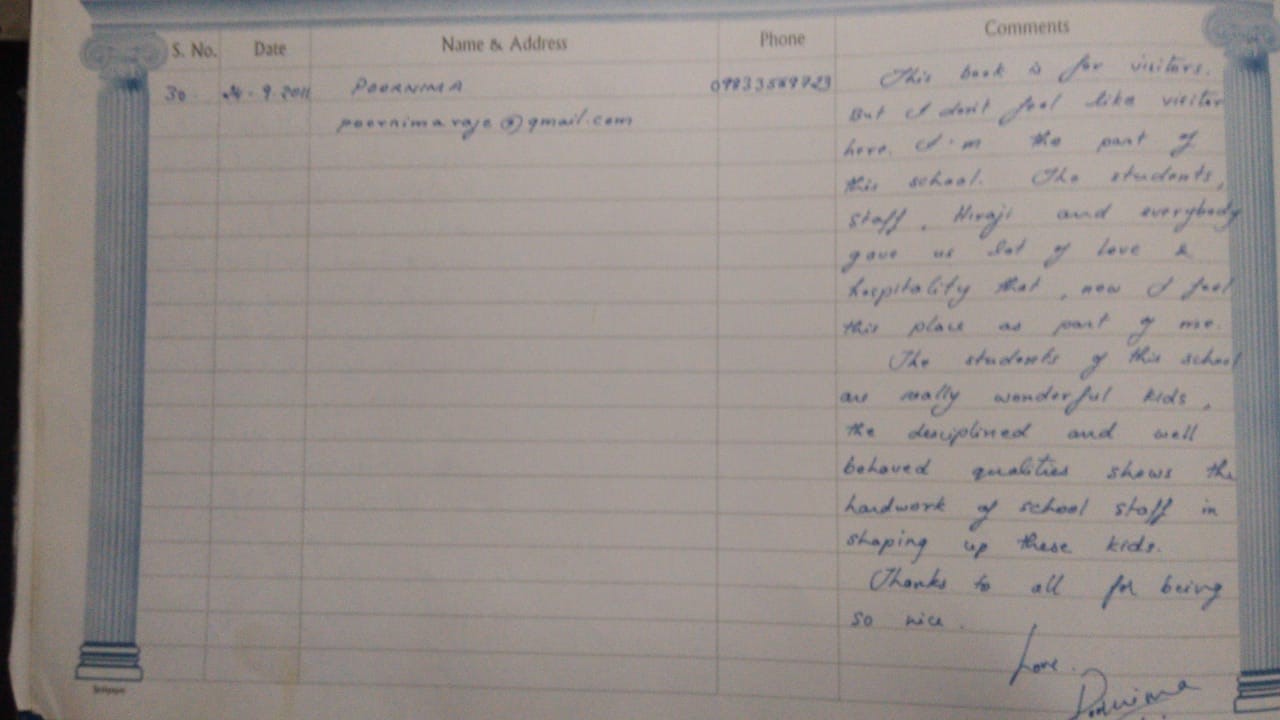 S. No. Date Name & Address Phone Comments
30. 24-9-2011 POORNIMA 09833569723 This book is for visitors.
poornimaraje@gmail.com But I don't feel like visitor
here. I'm the part of
this school. The students,
staff, Hiraji and everybody
gave us lot of love &
hospitality that, now I feel
this place as part of me.
The students of this school
are really wonderful kids,
the desciplined and well
behaved qualities shows the
hardwork of school staff in
shaping up these kids.
Thanks to all for being
so nice.
Love.
Poornima